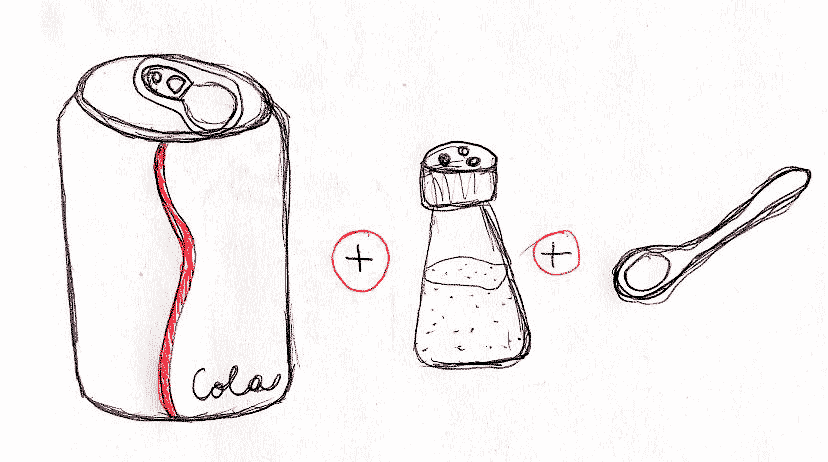 + +
Cola